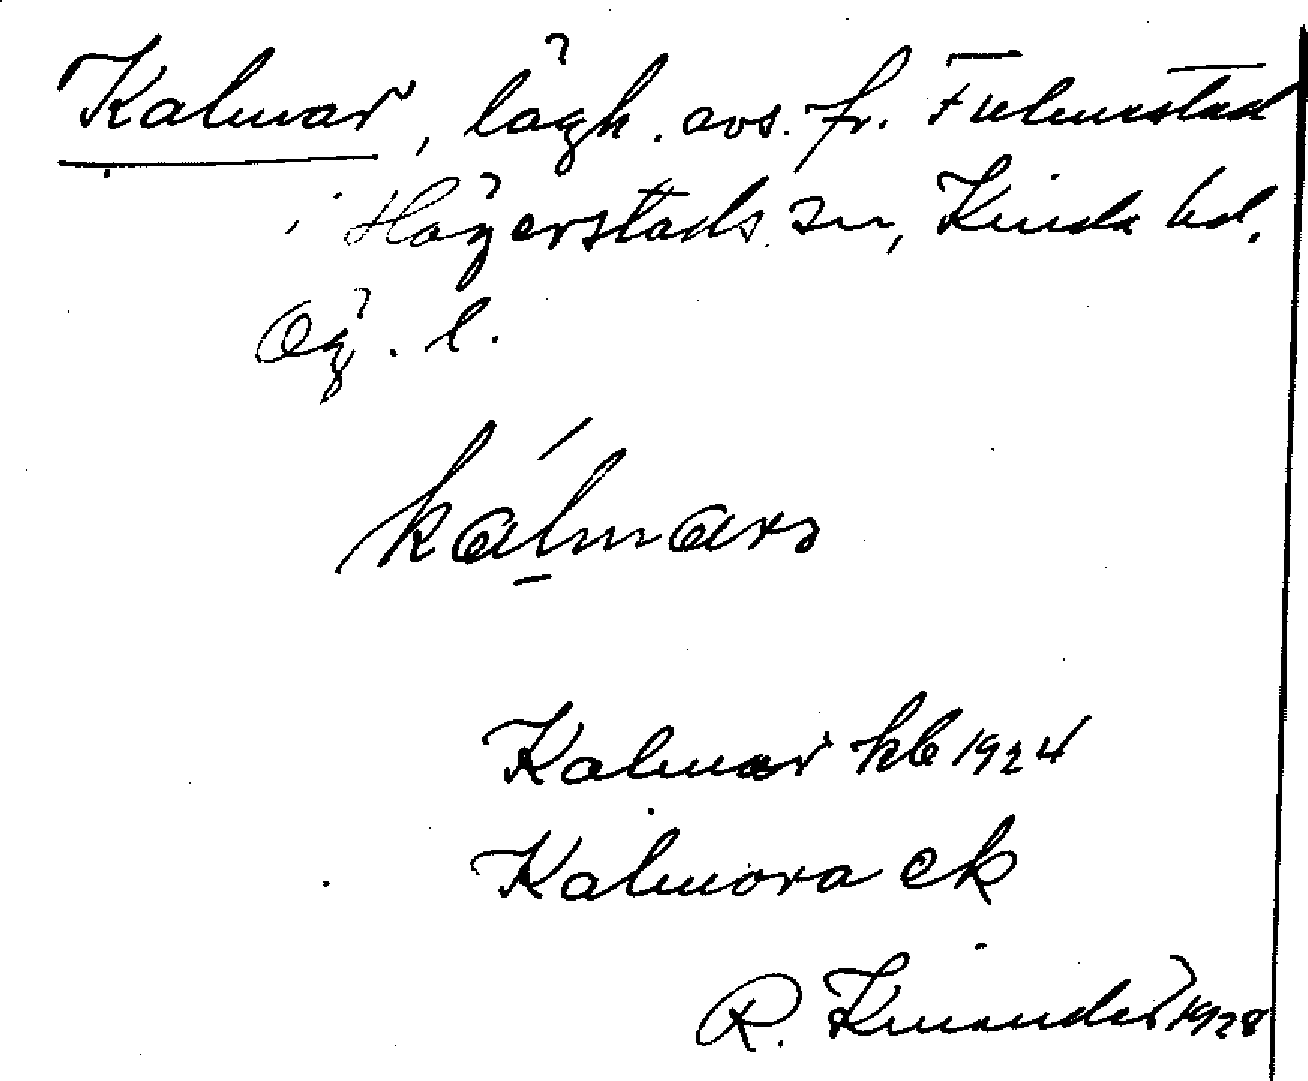 Kalmar, lägh. avs. fr. Fulmestad
i Hägerstads sn, Kinda hd.
Ög. l.
kálmars
Kalmar kb 1924
Kalmora ek
R. Kinander 1928